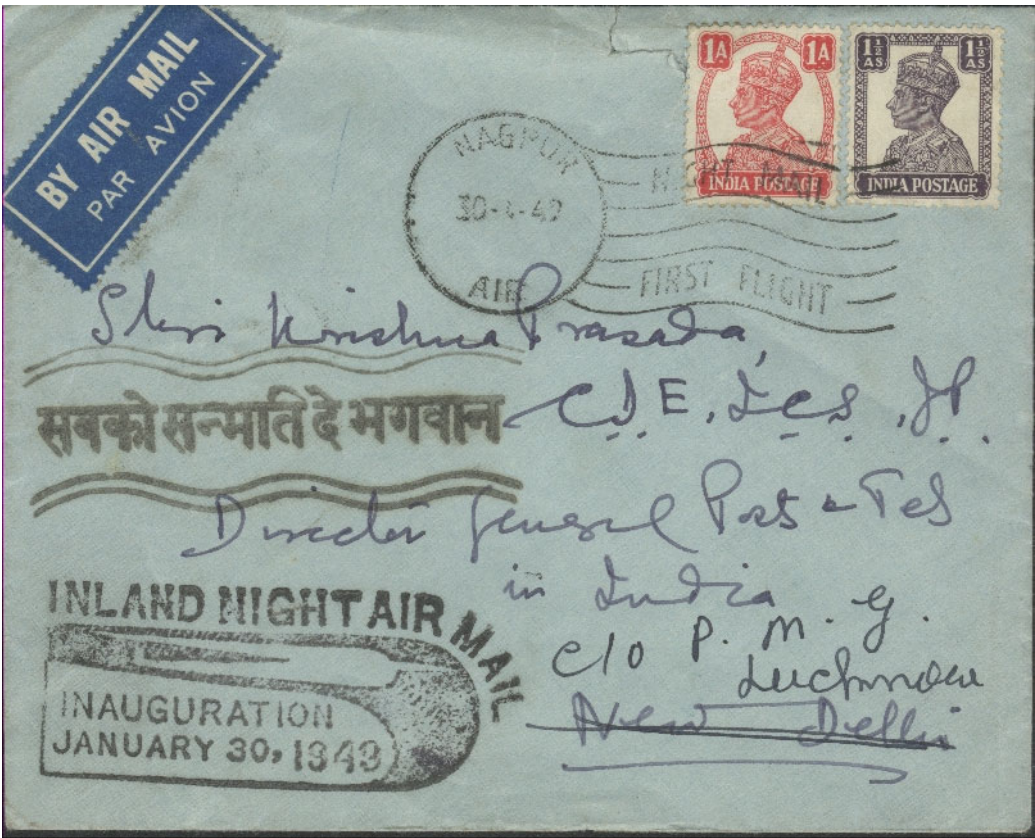 BY AIR MAIL
PAR AVION
1A 1A
INDIA POSTAGE
1½ AS 1½ AS
INDIA POSTAGE
NAGPUR
AIR
NIGHT MAIL
FIRST FLIGHT
Shri Krishna Prasada,
सबको सन्मति दे भगवान
C.I.E, I.C.S, J.P.
Director General Posts & Tels
in India
c/o P. M. G.
Lucknow
New Delhi
INLAND NIGHT AIR MAIL
INAUGURATION
JANUARY 30, 1949